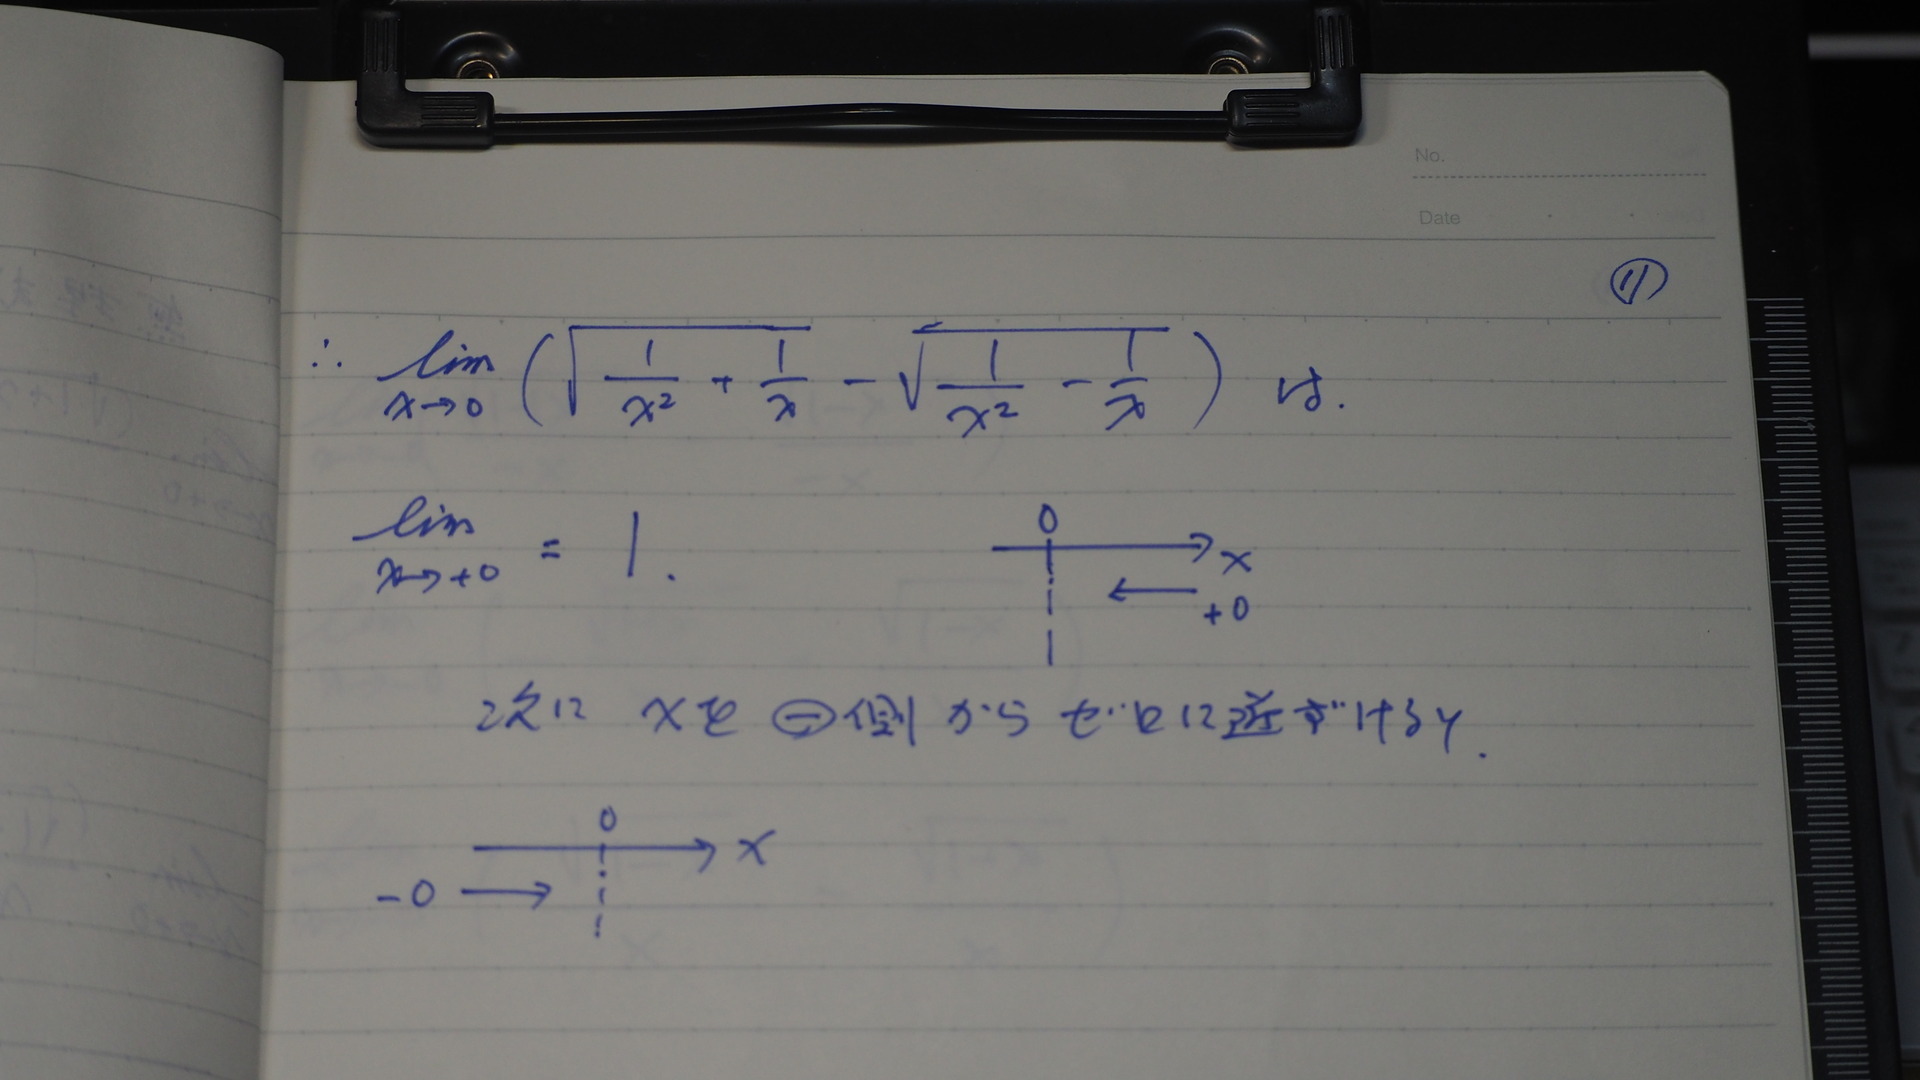 No.
Date
⑪
∴ lim x→0 (√(1/x² + 1/x) - √(1/x² - 1/x)) は.
lim x→+0 = 1.
0
x
+0
次に xを ⊖側から ゼロに近づけると.
0
x
-0